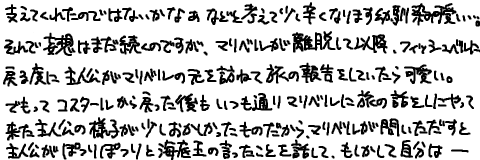 支えてくれたのではないかなぁ などと考えて少し辛くなります幼馴染愛しい。
そんで妄想はまだ続くのですが、マリベルが離脱して以降、フィッシュベルに
戻る度に主人公がマリベルの元を訪ねて旅の報告をしていたら可愛い。
でもって コスタールから戻った後も いつも通りマリベルに旅の話をしにやって
来た主人公の様子が少しおかしかったものだから、マリベルが問いただすと
主人公がぽつりぽつりと海底王の言ったことを話して、もしかして自分は ―